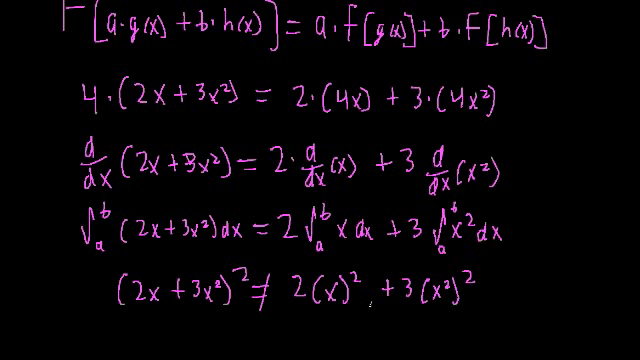 F[a·g(x) + b·h(x)] = a·f[g(x)] + b·F[h(x)]
4·(2x + 3x²) = 2·(4x) + 3·(4x²)
d/dx (2x + 3x²) = 2·d/dx(x) + 3 d/dx(x²)
∫ₐᵇ (2x + 3x²) dx = 2∫ₐᵇ x dx + 3∫ₐᵇ x² dx
(2x + 3x²)² ≠ 2(x)² + 3(x²)²